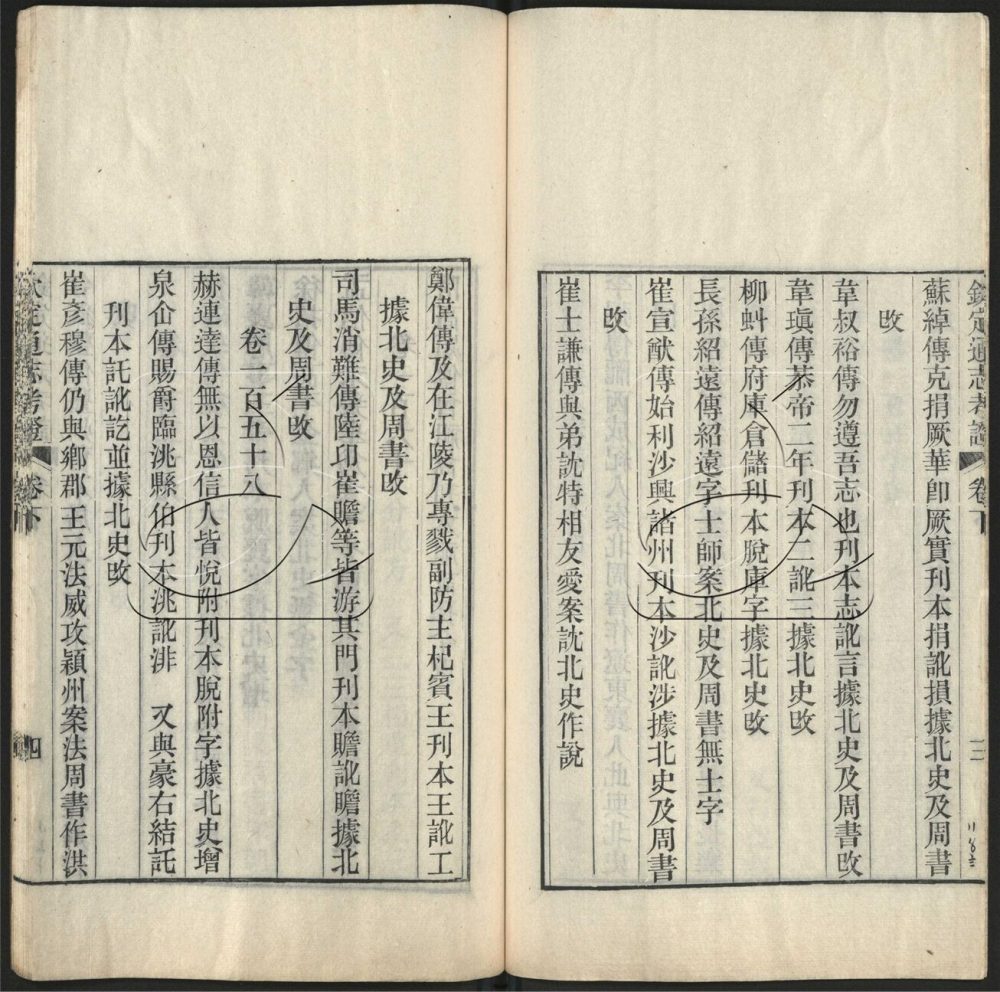 欽定通志考證 卷下 三
蘇綽傳克捐厥華卽厥實刊本捐訛損據北史及周書
改
韋叔裕傳勿遵吾志也刊本志訛言據北史及周書改
韋瑱傳恭帝二年刊本二訛三據北史改
柳蚪傳府庫倉儲刋本脫庫字據北史改
長孫紹遠傳紹遠字士師案北史及周書無士字
崔宣猷傳始利沙興諸州刊本沙訛涉據北史及周書
改
崔士謙傳與弟訦特相友愛案訦北史作說
鄭偉傳及在江陵乃專戮副防主杞賓王刊本王訛工
據北史及周書改
司馬消難傳陸卬崔贍等皆游其門刊本贍訛瞻據北
史及周書改
卷一百五十八
赫連達傳無以恩信人皆悅附刊本脫附字據北史增
泉仚傳賜爵臨洮縣伯刊本洮訛淮 又與豪右結託
刊本託訛訖並據北史改
崔彥穆傳仍與鄉郡王元法威攻潁州案法周書作洪
欽定通志考證 卷下 四